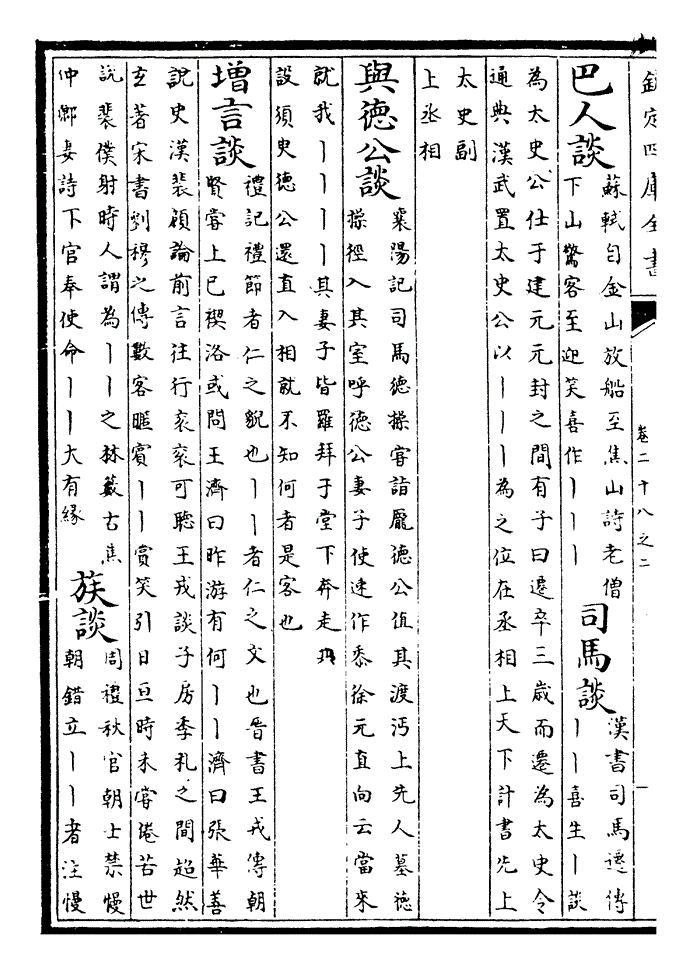 欽定四庫全書
卷二十八之二
一
巴人談
蘇軾自金山放船至焦山詩老僧
下山驚客至迎笑喜作丨丨丨
司馬談
漢書司馬遷傳
丨丨喜生丨談
為太史公仕于建元元封之間有子曰遷卒三歲而遷為太史令
通典漢武置太史公以丨丨丨為之位在丞相上天下計書先上
太史副
上丞相
與德公談
襄陽記司馬德操嘗詣龎德公值其渡沔上先人墓德
操徑入其室呼德公妻子使速作黍徐元直向云當來
就我丨丨丨丨其妻子皆羅拜于堂下奔走共
設須臾德公還直入相就不知何者是客也
增言談
禮記禮節者仁之貌也丨丨者仁之文也晉書王戎傳朝
賢嘗上巳禊洛或問王濟曰昨游有何丨丨濟曰張華善
說史漢裴頠論前言往行衮衮可聽王戎談子房季札之間超然
玄著宋書劉穆之傳數客暱賓丨丨賞笑引日亘時未嘗倦苦世
說裴僕射時人謂為丨丨之林藪古焦
仲卿妻詩下官奉使命丨丨大有緣
族談
周禮秋官朝士禁慢
朝錯立丨丨者注慢